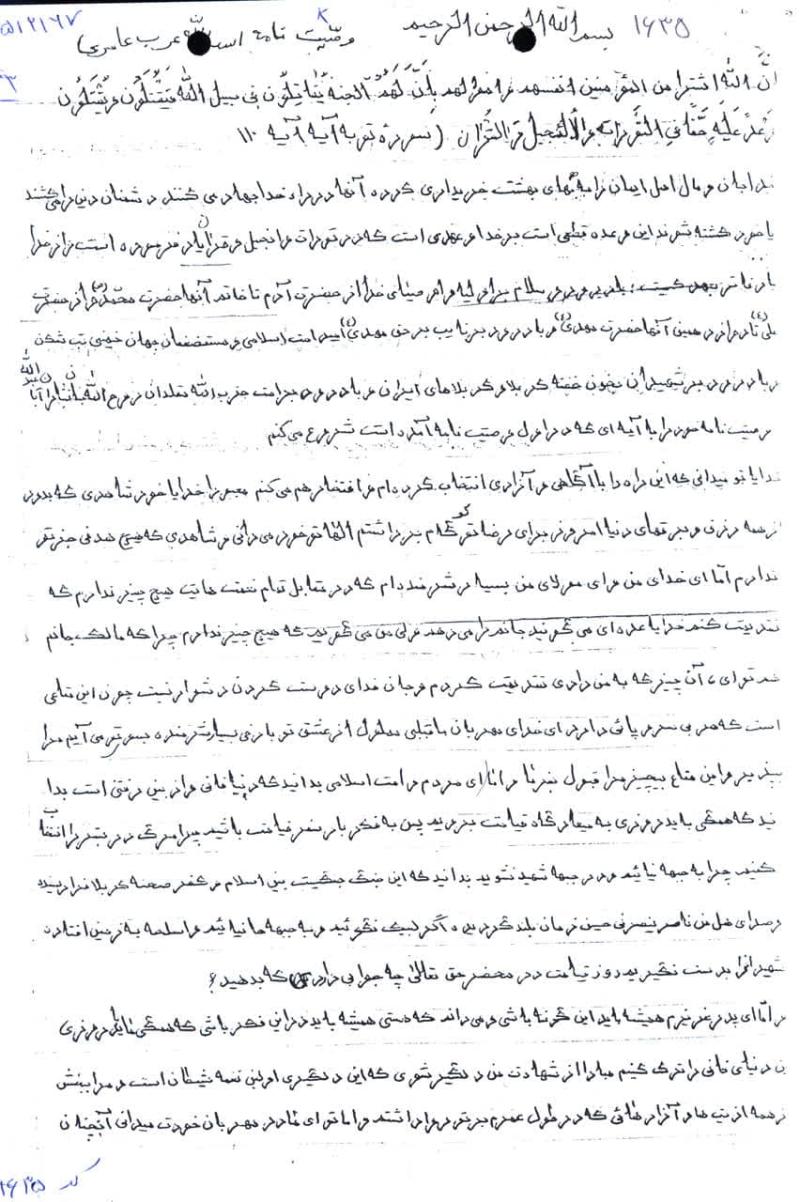 ۵۱۲۱۶۷
۱۶۳۵ بسم الله الرحمن الرحیم وصیت نامه اسدالله عرب عامری
۳
انَّ اللهَ اشترا من المؤمنین انفسهم و اموالهم بِاَنَّ لَهُمُ الجنه یُقاتِلُونَ فی سبیل اللهِ فَیَقتُلُونَ وَ یُقتَلُونَ
وَعدً عَلَیهِ حَقّاً فیِ التَّوراتِ و الاَنجیل وَ القُرآنِ (سوره توبه آیه آیه ۱۱۰
خدا جان و مال اهل ایمان را به بهای بهشت خریداری کرده آنها در راه خدا جهاد می کنند دشمنان دین را می کشند
یا خود کشته شوند این وعده قطعی است بر خدا و عهدی است که در تورات و انجیل و قرآن یاد فرموده است و از خدا
با وفاتر بعهد کیست؛ با درود و سلام بر اولیه و انبیای خدا از حضرت آدم تا خاتم آنها حضرت محمد(ص) و از حضرت
علی(ع) تا و از دهمین آنها حضرت مهدی(ع) و با درود بر نایب بر حق مهدی(ع) امید امت اسلامی و مستضعفان جهان خمینی بت شکن
و با درود بر شهیدان بخون خفته کربلا و کربلاهای ایران و با درود بر امت حزب الله مقلدان روح الله
وصیت نامه خود را به آیه ای که در اول وصیت نامه آمده است شروع می کنم
خدایا تو میدانی که این راه را با آگاهی و آزادی انتخاب کرده ام و افتخار هم می کنم معبودا خدایا خود شاهدی که بدور
از همه زرق و برقهای دنیا امروز برای رضا تو گام برداشتم الها تو خود می دانی و شاهدی که هیچ هدفی جز تو
ندارم اما ای خدای من و ای مولای من بسیار شرمنده ام که در مقابل تمام نعمت هایت هیچ چیز ندارم که
تقدیمت کنم خدایا عده ای می گویند جانم را می دهند ولی من می گویم که هیچ چیز ندارم چرا که مالک جانم
هم تو ای، آن چیز که به من دادی تقدیمت کردم و جان فدای دوست کردن دشوار نیست چون این متاعی
است که هر بی سر و پائی دارد ای خدای مهربان با قلبی مملو از عشق تو با روی بسیار شرمنده بسوی تو می آیم مرا
بپذیر و این متاع بیچیز مرا قبول بفرما و اما ای مردم و امت اسلامی بدانید که دنیا فانی و از بین رفتنی است بدا
نید که همگی باید روزی به میعادگاه قیامت بروید پس به فکر بار سفر قیامت باشید چرا مرگ در بستر را انتخاب
کنید چرا به جبهه نیائید و در جبهه شهید نشوید بدانید که این جنگ جنگیست بین اسلام و کفر صحنه کربلا قرار
و صدای هل من ناصر ینصرنی حسین زمان بلند گردیده اگر لبیک نگوئید و به جبهه ها نیائید و اسلحه به زمین افتاده
شهید را بدست نگیرید روز قیامت در محضر حق تعالی چه جوابی دارید که بدهید؟
و اما ای پدر عزیزم همیشه باید این گونه باشی و می داند که هستی همیشه باید در این فکر باشی که همگی ما باید روزی
این دنیای فانی را ترک کنیم مبادا از شهادت من دلگیر شوی که این دلگیری اولین نغمه شیطان است و مرا ببخش
از همه اذیت ها و آزارهائی که در طول عمرم بر تو روا داشتم و اما تو ای مادر مهربان خودت میدانی آنچنان
کد ۱۶۳۵